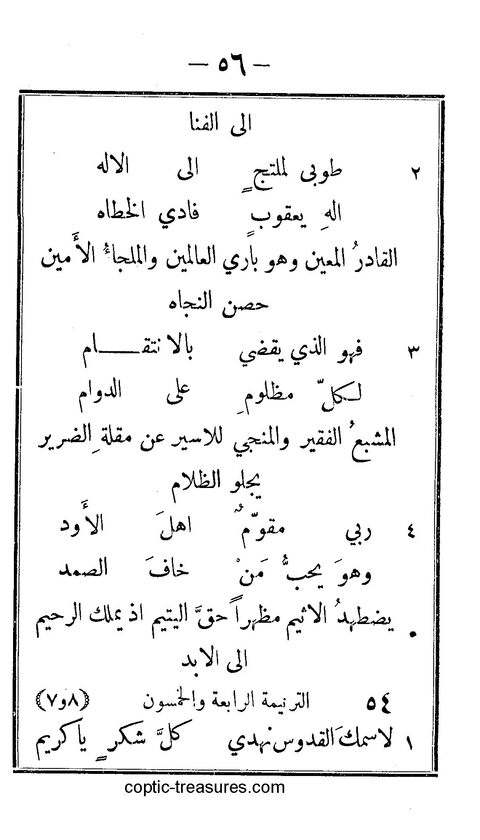 — ٥٦ —
الى الفنا
٢ طوبى لملتجٍ الى الاله
الهِ يعقوبٍ فادي الخطاه
القادرُ المعين وهو باري العالمين والملجاءُ الأَمين
حصن النجاه
٣ فهو الذي يقضي بالانتقـــام
لـكلّ مظلومِ على الدوام
المشبعُ الفقير والمنجي للاسير عن مقلةِ الضرير
يجلو الظلام
٤ ربي مقوّمٌ اهلَ الأَود
وهوَ يحبُّ مَنْ خافَ الصمد
يضطهدُ الاثيم مظهراً حقَّ اليتيم اذ يملك الرحيم
الى الابد
٥٤ الترنيمة الرابعة والخمسون (٨و٧)
١ لاسمكَ القدوس نهدي كلَّ شكرٍ ياكريم
coptic-treasures.com